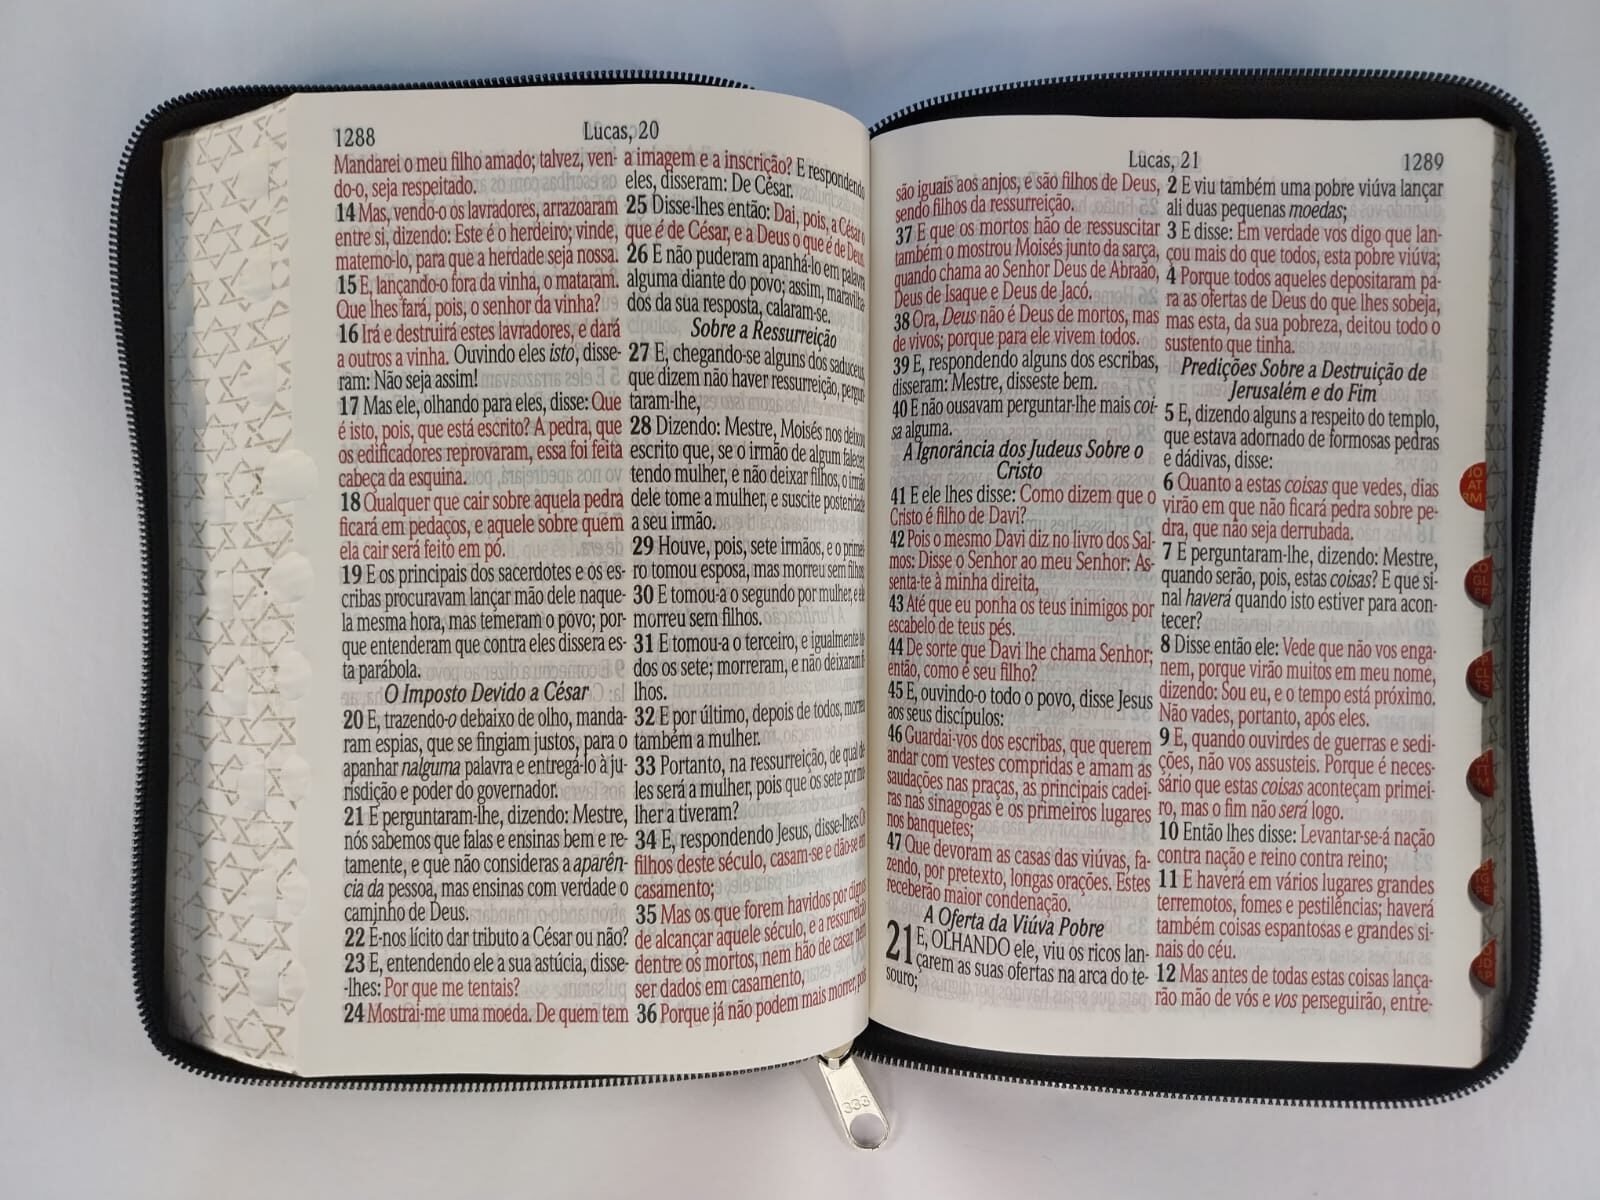 1288
Lucas, 20
Mandarei o meu filho amado; talvez, ven-
do-o, seja respeitado.
14 Mas, vendo-o os lavradores, arrazoaram
entre si, dizendo: Este é o herdeiro; vinde,
matemo-lo, para que a herdade seja nossa.
15 E, lançando-o fora da vinha, o mataram.
Que lhes fará, pois, o senhor da vinha?
16 Irá e destruirá estes lavradores, e dará
a outros a vinha. Ouvindo eles isto, disse-
ram: Não seja assim!
17 Mas ele, olhando para eles, disse: Que
é isto, pois, que está escrito? A pedra, que
os edificadores reprovaram, essa foi feita
cabeça da esquina.
18 Qualquer que cair sobre aquela pedra
ficará em pedaços, e aquele sobre quem
ela cair será feito em pó.
19 E os principais dos sacerdotes e os es-
cribas procuravam lançar mão dele naque-
la mesma hora, mas temeram o povo; por-
que entenderam que contra eles dissera es-
ta parábola.
O Imposto Devido a César
20 E, trazendo-o debaixo de olho, manda-
ram espias, que se fingiam justos, para o
apanhar nalguma palavra e entregá-lo à ju-
risdição e poder do governador.
21 E perguntaram-lhe, dizendo: Mestre,
nós sabemos que falas e ensinas bem e re-
tamente, e que não consideras a aparên-
cia da pessoa, mas ensinas com verdade o
caminho de Deus.
22 É-nos lícito dar tributo a César ou não?
23 E, entendendo ele a sua astúcia, disse-
-lhes: Por que me tentais?
24 Mostrai-me uma moeda. De quem tem
a imagem e a inscrição? E respondendo
eles, disseram: De César.
25 Disse-lhes então: Dai, pois, a César o
que é de César, e a Deus o que é de Deus.
26 E não puderam apanhá-lo em palavra
alguma diante do povo; assim, maravilha-
dos da sua resposta, calaram-se.
Sobre a Ressurreição
27 E, chegando-se alguns dos saduceus,
que dizem não haver ressurreição, pergun-
taram-lhe,
28 Dizendo: Mestre, Moisés nos deixou
escrito que, se o irmão de algum falecer,
tendo mulher, e não deixar filhos, o irmão
dele tome a mulher, e suscite posteridade
a seu irmão.
29 Houve, pois, sete irmãos, e o primei-
ro tomou esposa, mas morreu sem filhos
30 E tomou-a o segundo por mulher, e ele
morreu sem filhos.
31 E tomou-a o terceiro, e igualmente to-
dos os sete; morreram, e não deixaram fi-
lhos.
32 E por último, depois de todos, morreu
também a mulher.
33 Portanto, na ressurreição, de qual de-
les será a mulher, pois que os sete por mu-
lher a tiveram?
34 E, respondendo Jesus, disse-lhes: Os
filhos deste século, casam-se e dão-se em
casamento;
35 Mas os que forem havidos por dignos
de alcançar aquele século, e a ressurreição
dentre os mortos, nem hão de casar, nem
ser dados em casamento,
36 Porque já não podem mais morrer, pois
Lucas, 21
1289
são iguais aos anjos, e são filhos de Deus,
sendo filhos da ressurreição.
37 E que os mortos hão de ressuscitar
também o mostrou Moisés junto da sarça,
quando chama ao Senhor Deus de Abraão,
Deus de Isaque e Deus de Jacó.
38 Ora, Deus não é Deus de mortos, mas
de vivos; porque para ele vivem todos.
39 E, respondendo alguns dos escribas,
disseram: Mestre, disseste bem.
40 E não ousavam perguntar-lhe mais coi-
sa alguma.
A Ignorância dos Judeus Sobre o
Cristo
41 E ele lhes disse: Como dizem que o
Cristo é filho de Davi?
42 Pois o mesmo Davi diz no livro dos Sal-
mos: Disse o Senhor ao meu Senhor: As-
senta-te à minha direita,
43 Até que eu ponha os teus inimigos por
escabelo de teus pés.
44 De sorte que Davi lhe chama Senhor;
então, como é seu filho?
45 E, ouvindo-o todo o povo, disse Jesus
aos seus discípulos:
46 Guardai-vos dos escribas, que querem
andar com vestes compridas e amam as
saudações nas praças, as principais cadei-
ras nas sinagogas e os primeiros lugares
nos banquetes;
47 Que devoram as casas das viúvas, fa-
zendo, por pretexto, longas orações. Estes
receberão maior condenação.
A Oferta da Viúva Pobre
21 E, OLHANDO ele, viu os ricos lan-
çarem as suas ofertas na arca do te-
souro;
2 E viu também uma pobre viúva lançar
ali duas pequenas moedas;
3 E disse: Em verdade vos digo que lan-
çou mais do que todos, esta pobre viúva;
4 Porque todos aqueles depositaram pa-
ra as ofertas de Deus do que lhes sobeja,
mas esta, da sua pobreza, deitou todo o
sustento que tinha.
Predições Sobre a Destruição de
Jerusalém e do Fim
5 E, dizendo alguns a respeito do templo,
que estava adornado de formosas pedras
e dádivas, disse:
6 Quanto a estas coisas que vedes, dias
virão em que não ficará pedra sobre pe-
dra, que não seja derrubada.
7 E perguntaram-lhe, dizendo: Mestre,
quando serão, pois, estas coisas? E que si-
nal haverá quando isto estiver para acon-
tecer?
8 Disse então ele: Vede que não vos enga-
nem, porque virão muitos em meu nome,
dizendo: Sou eu, e o tempo está próximo.
Não vades, portanto, após eles.
9 E, quando ouvirdes de guerras e sedi-
ções, não vos assusteis. Porque é neces-
sário que estas coisas aconteçam primei-
ro, mas o fim não será logo.
10 Então lhes disse: Levantar-se-á nação
contra nação e reino contra reino;
11 E haverá em vários lugares grandes
terremotos, fomes e pestilências; haverá
também coisas espantosas e grandes si-
nais do céu.
12 Mas antes de todas estas coisas lança-
rão mão de vós e vos perseguirão, entre-
JO
AT
RM
333